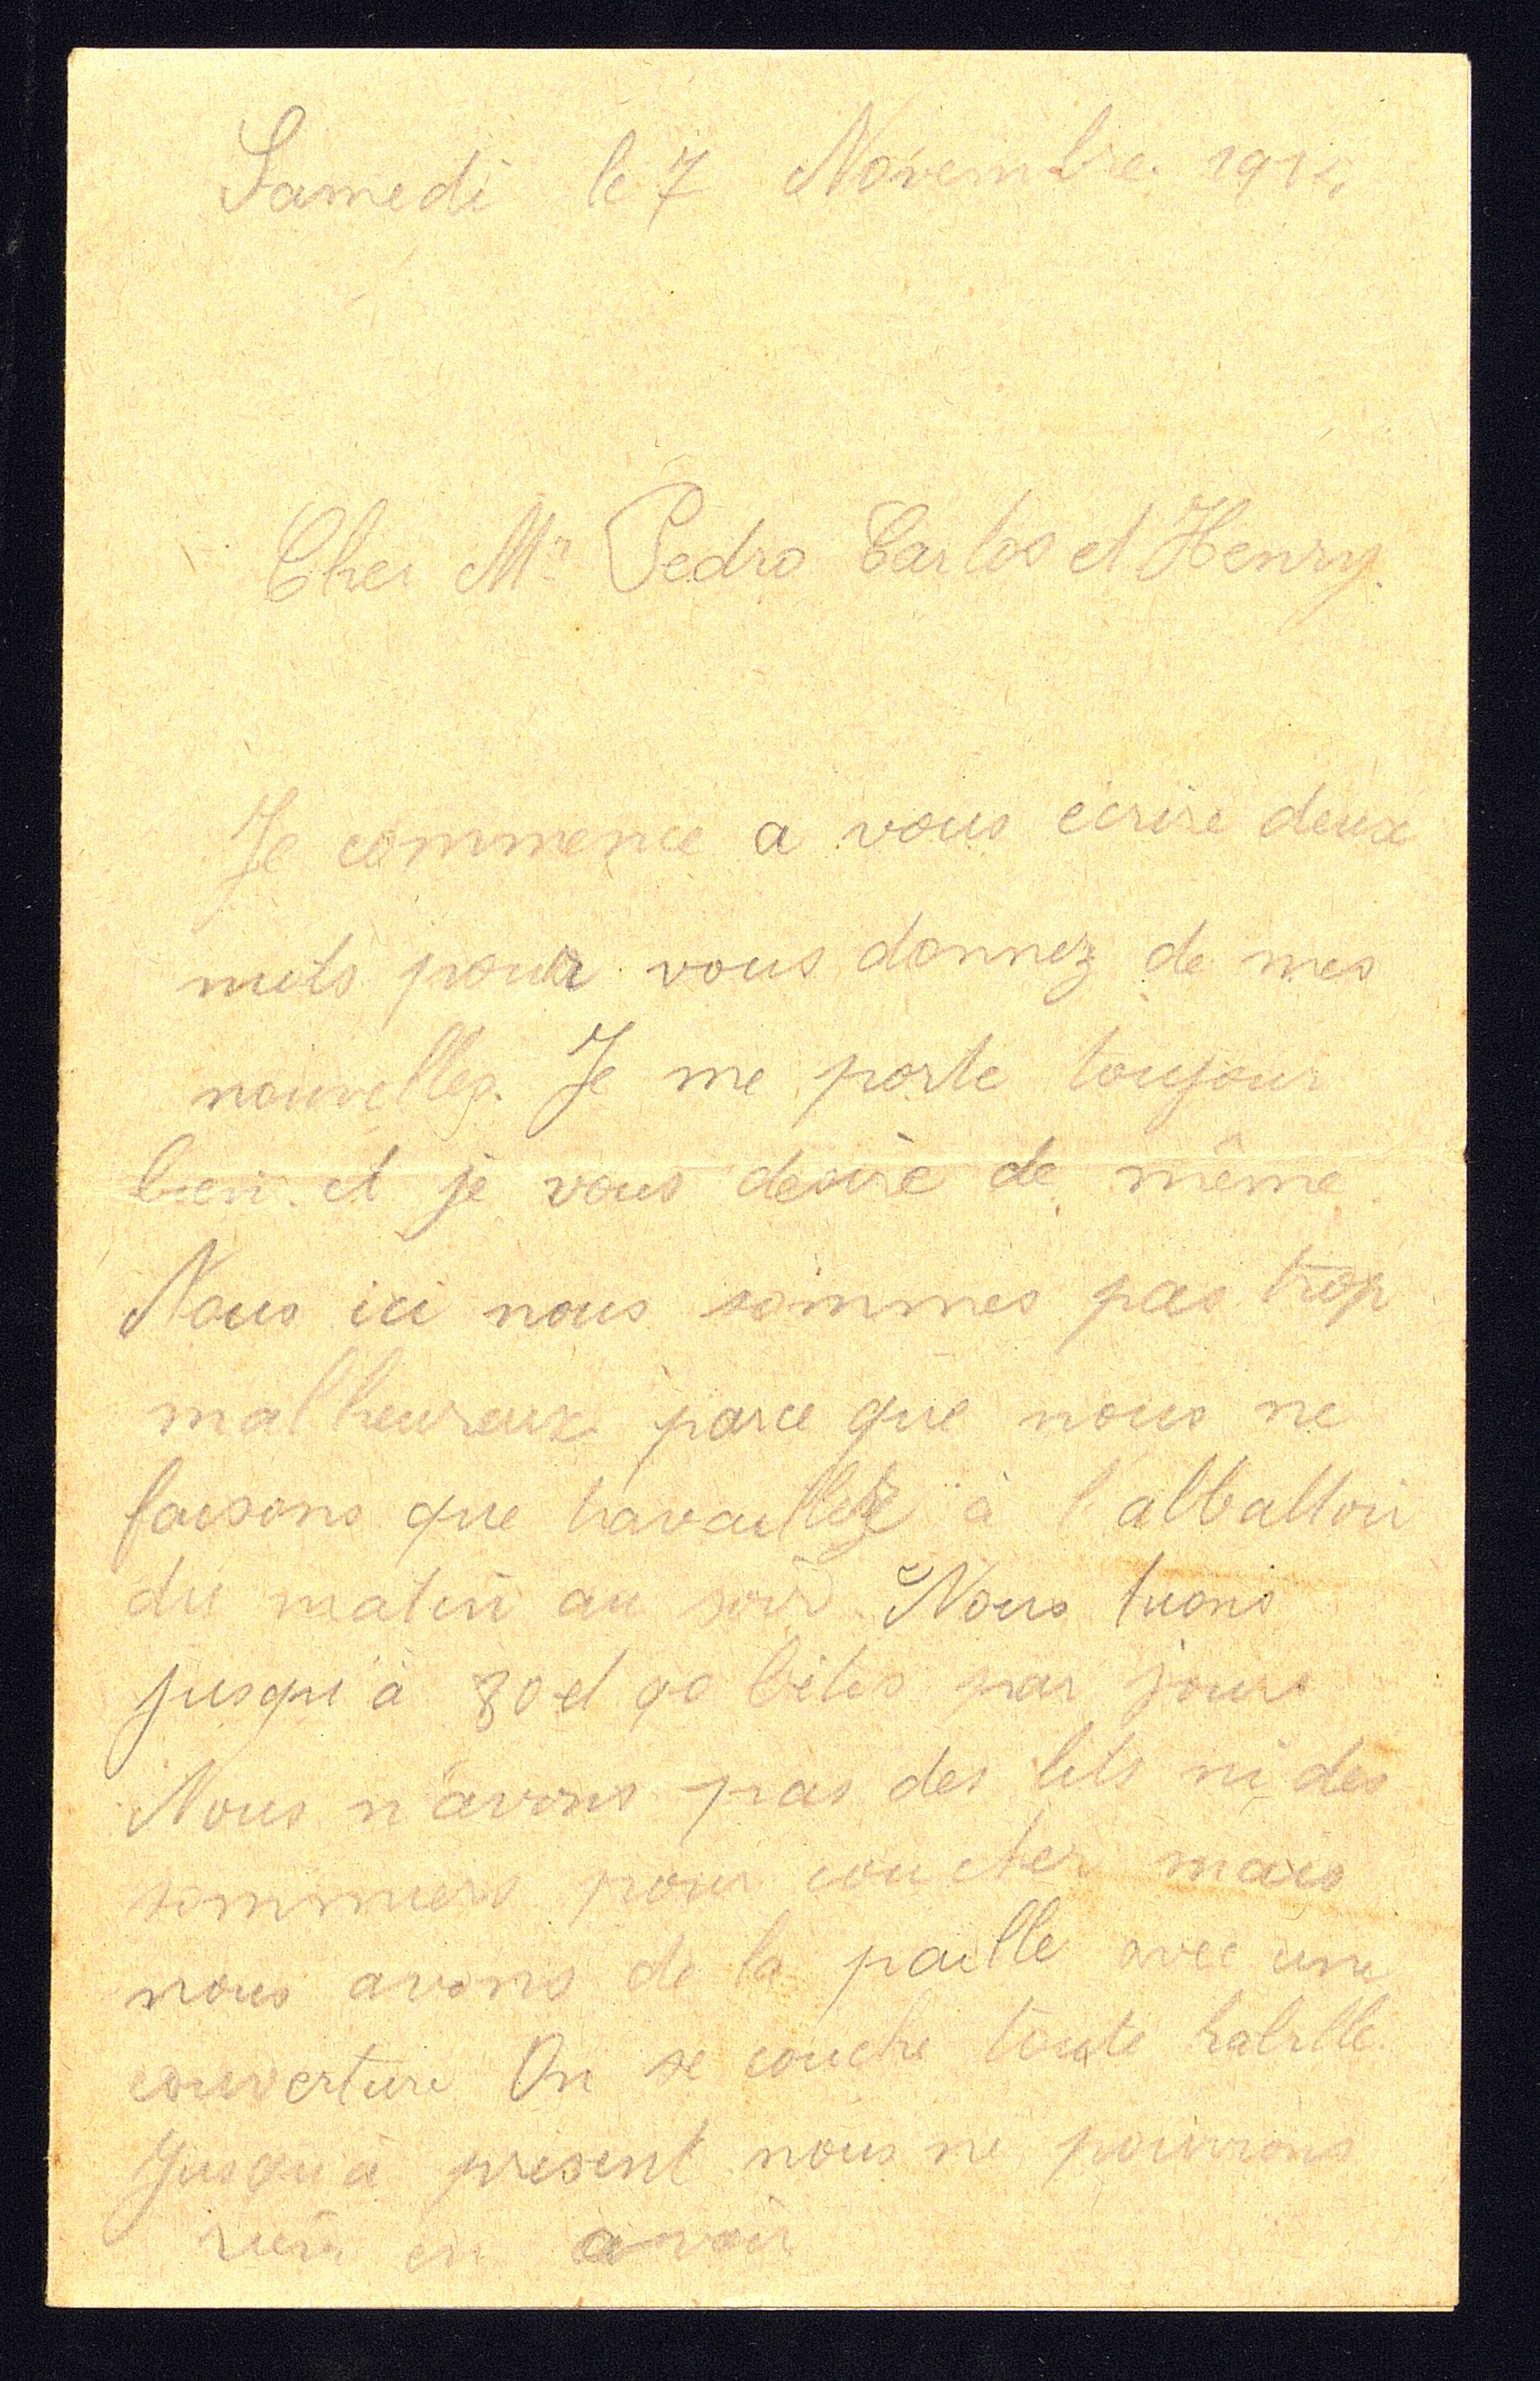 Samedi le 7 Novembre 1914
Cher Mr Pedro Carlos et Henry.
Je commence a vous ecrire deux
mots pour vous donnez de mes
nouvelles. Je me porte toujour
bien et je vous desire de même
Nous ici nous sommes pas trop
malheureux parce que nous ne
faisons que travaillez à l'abbattoir
du matin au soir. Nous tuons
jusqu'à 80 et 90 bêtes par jours
Nous n'avons pas des lits ni des
sommiers pour coucher mais
nous avons de la paille avec une
couverture On se couche toute habille
Jusqu'a present nous ne pouvons
rien en avoir